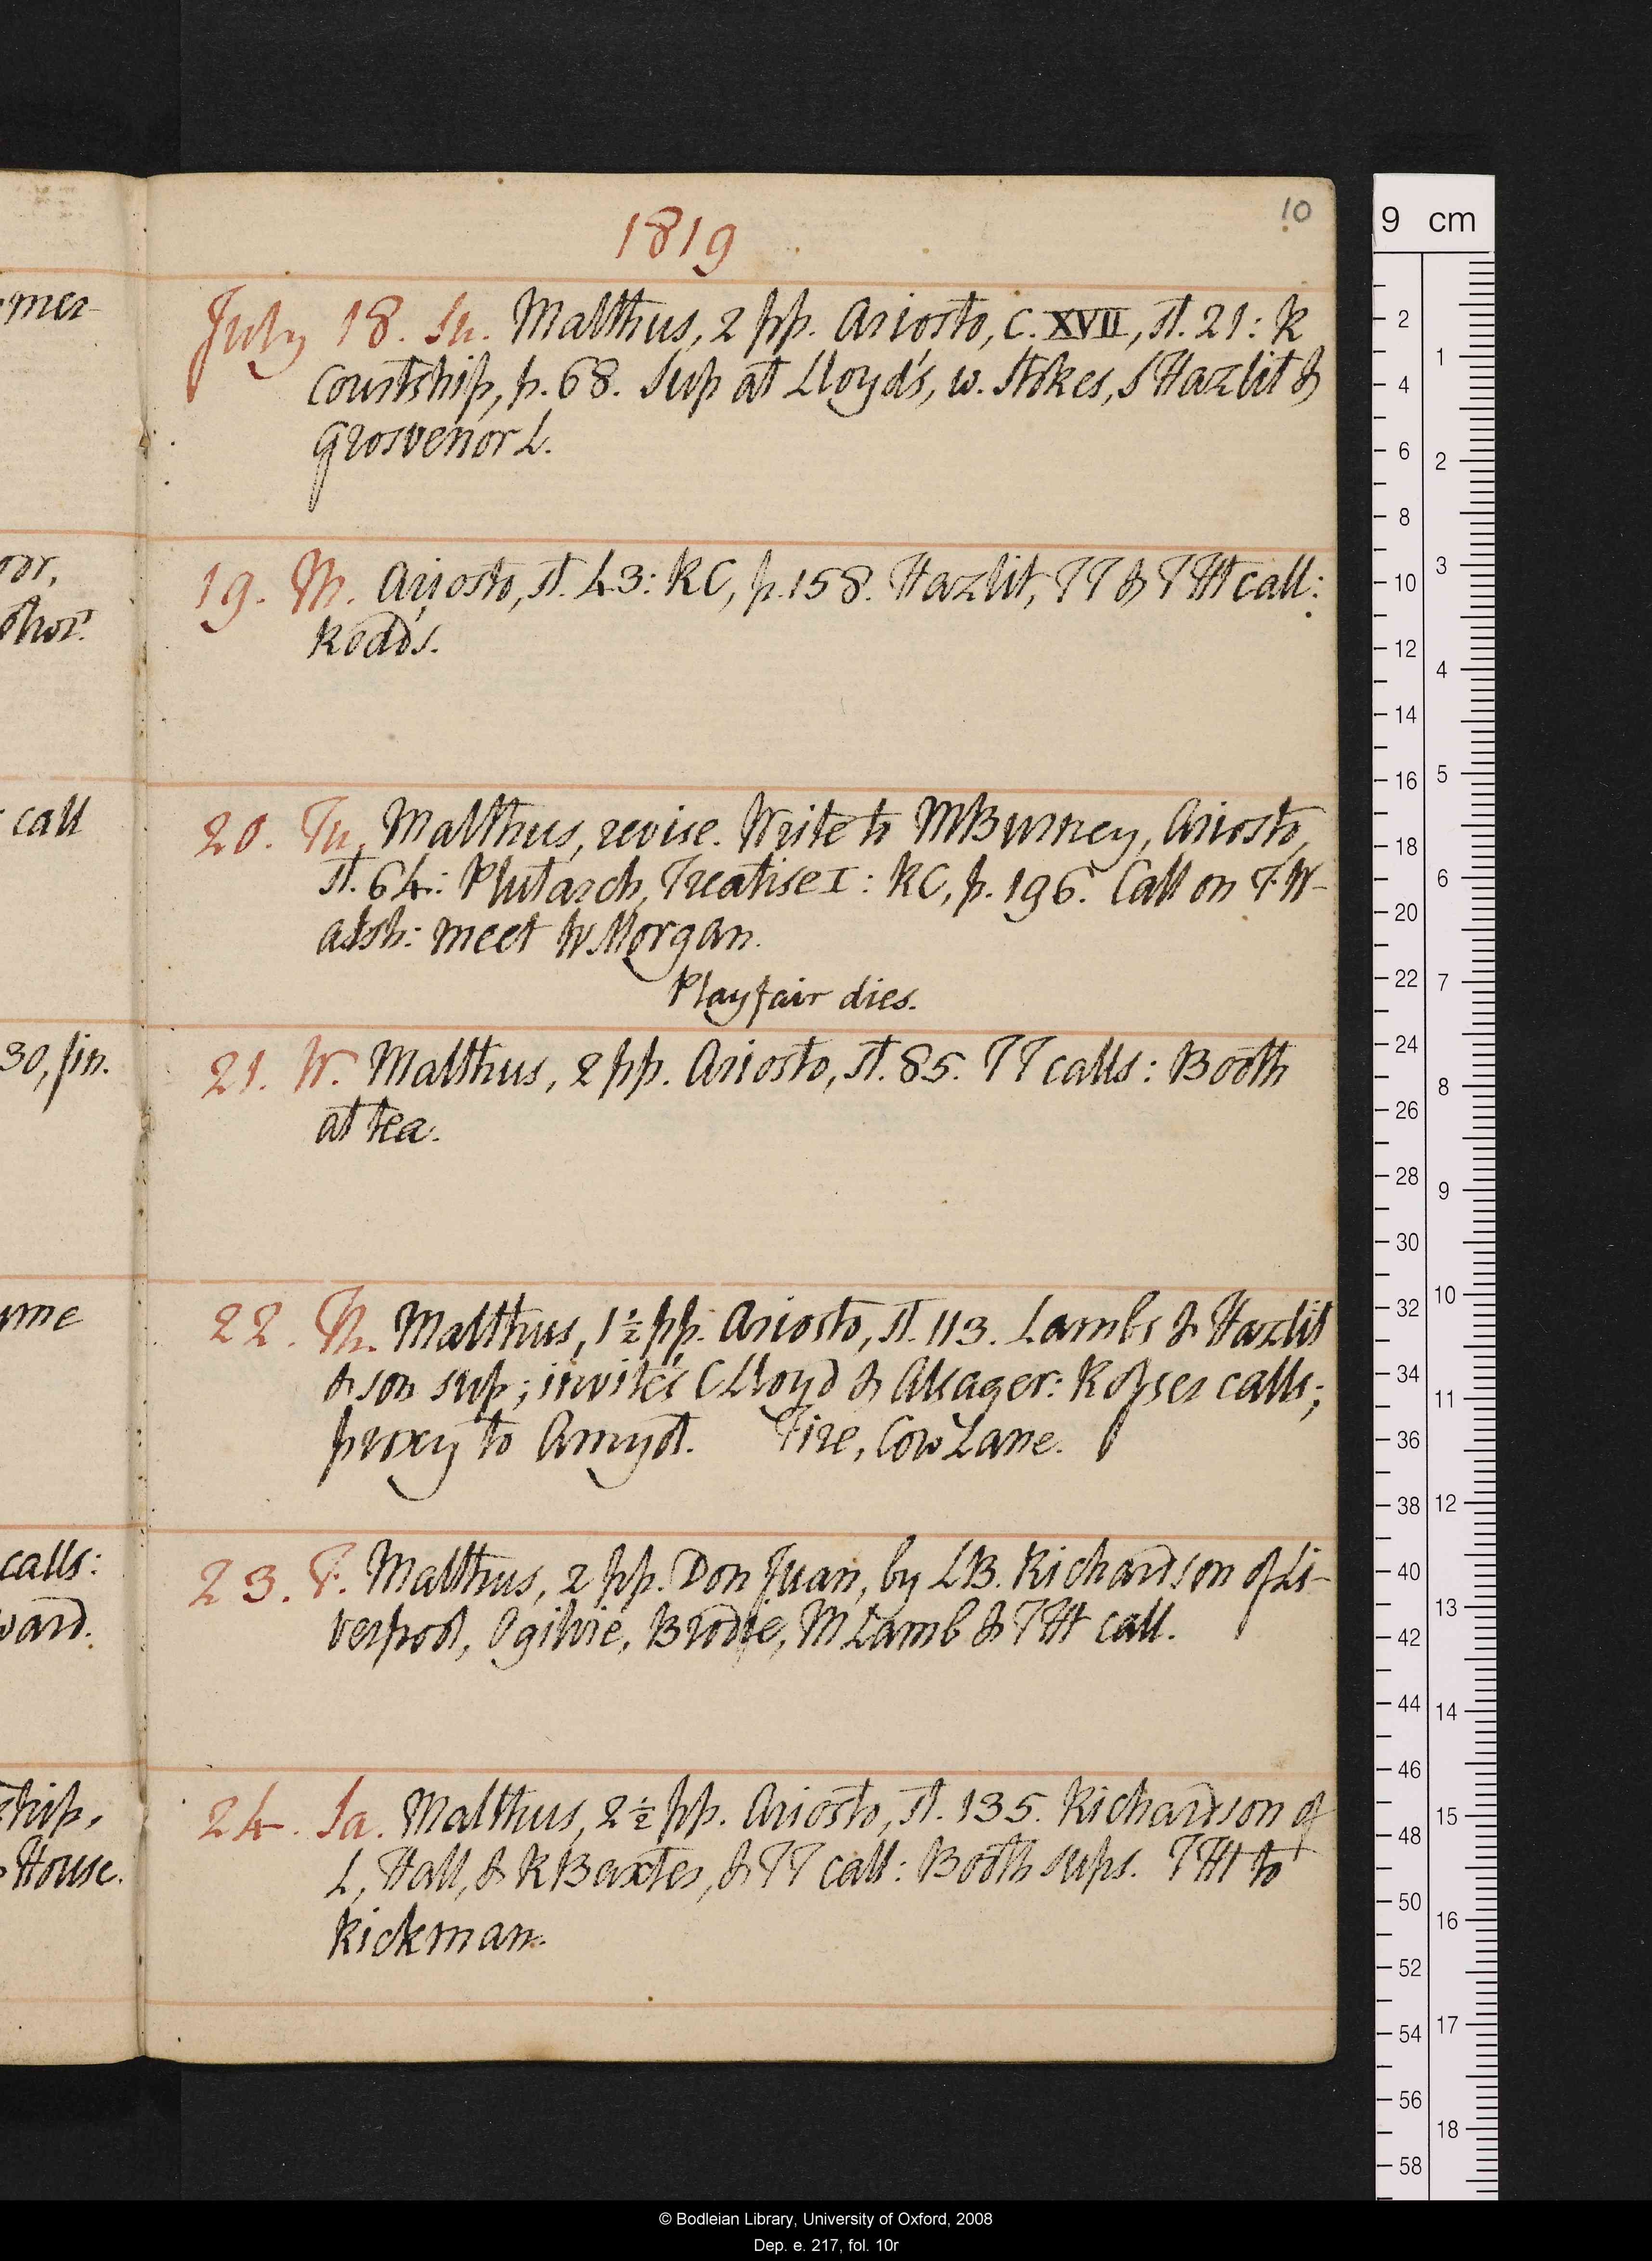 10
1819
July 18. Su. Malthus, 2 pp. Ariosto, C. XVII, st. 21: R
Courtship, p. 68. Sup at Lloyd's, w. Stokes, S Hazlit &
Grosvenor L.
19. M. Ariosto, st. 43: RC, p. 158. Hazlit, TT & THt call:
Rodd's.
20. Tu. Malthus, revise. Write to MBurney, Ariosto,
st. 64: Plutarch, Treatise I: RC, p. 196. Call on F. W-
alsh: meet W Morgan.
Playfair dies.
21. W. Malthus, 2 pp. Ariosto, st. 85. TT calls: Booth
at tea.
22. Th. Malthus, 1½ pp. Ariosto, st. 113. Lambs & Hazlit
& son sup; invités C Lloyd & Alsager: Rosser calls;
proxy to Amyot. Fire, Cow Lane.
23. F. Malthus, 2 pp. Don Juan, by LB. Richardson of Li-
verpool, Ogilvie, Brodie, M Lamb & THt call.
24. Sa. Malthus, 2½ pp. Ariosto, st. 135. Richardson of
L, Hall, & R Baxter, & TT call: Booth sups. THt to
Rickman.
mer-
oor,
call
30, fin.
ume
calls:
ward.
ship,
House.
9 cm
2
4
6
8
10
12
14
16
18
20
22
24
26
28
30
32
34
36
38
40
42
44
46
48
50
52
54
56
58
1
2
3
4
5
6
7
8
9
10
11
12
13
14
15
16
17
18
© Bodleian Library, University of Oxford, 2008
Dep. e. 217, fol. 10r